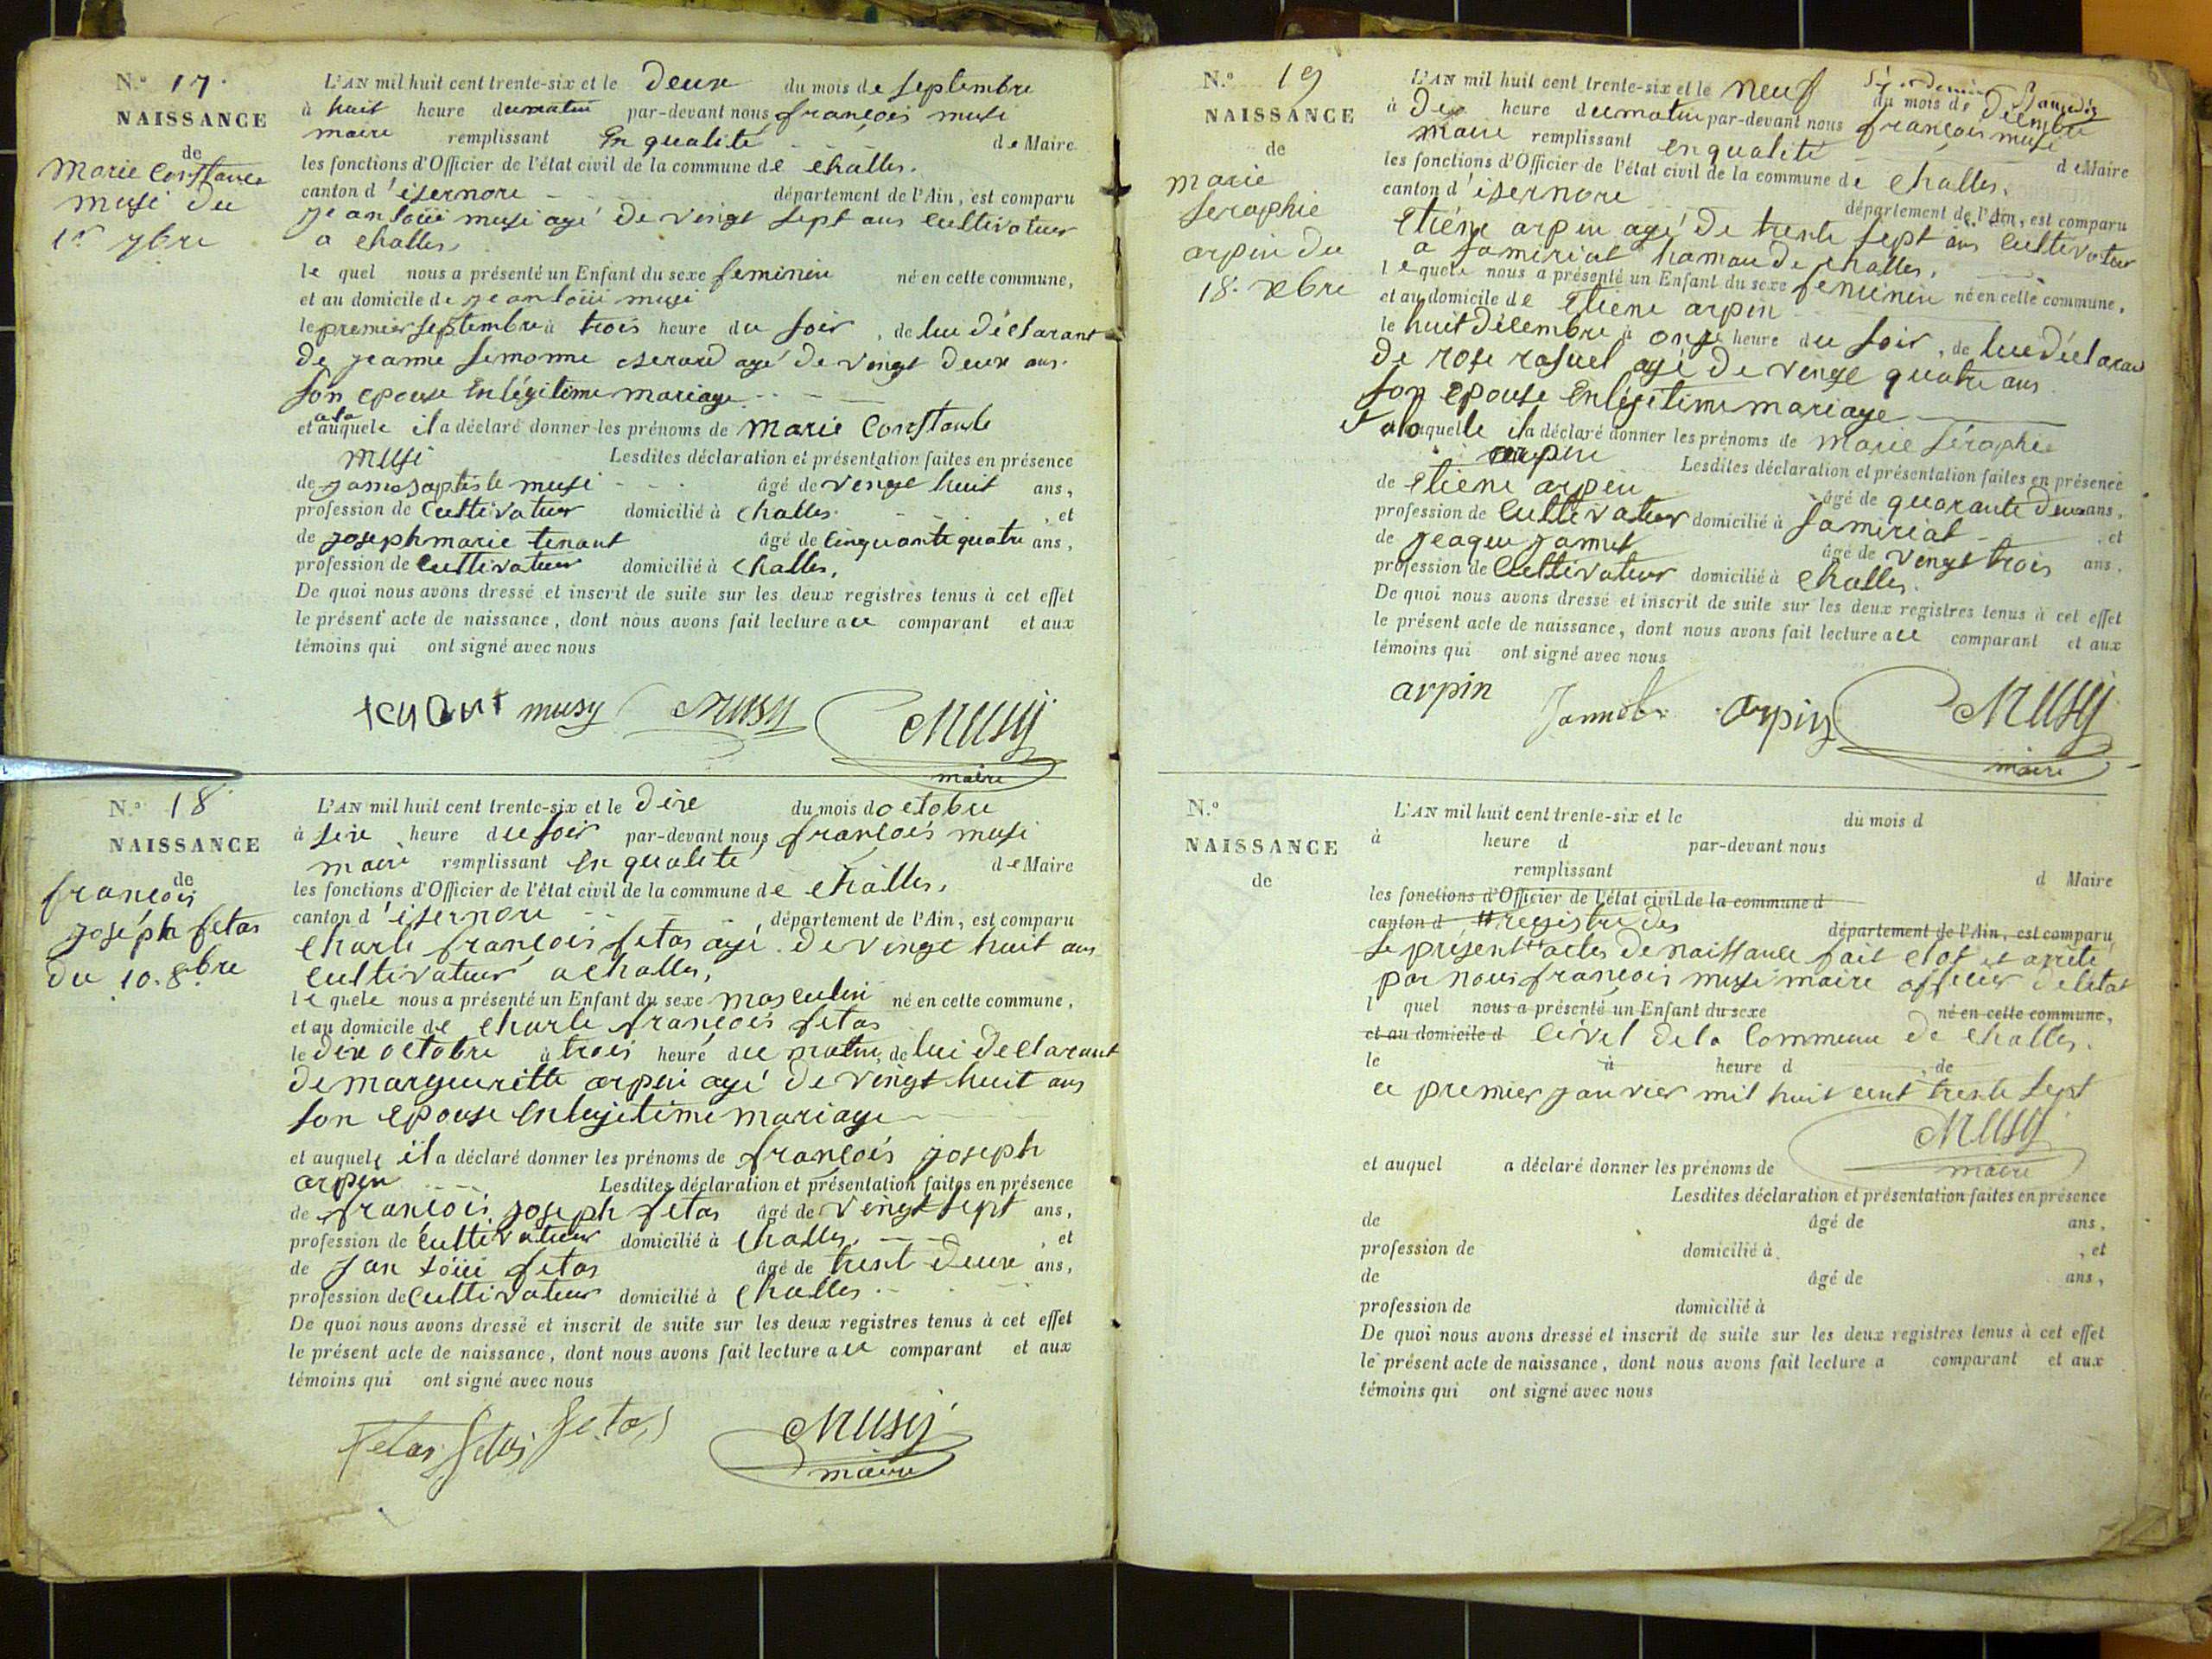 N.º 17.
NAISSANCE
de
Marie Constance
musi du
1er 7bre
L'AN mil huit cent trente-six et le deux du mois de septembre
à huit heure dumatin par-devant nous françois musi
maire remplissant En qualité de Maire
les fonctions d'Officier de l'état civil de la commune de challes.
canton d'isernore département de l'Ain, est comparu
jean loüi musi agé de vingt sept ans cultivateur
a challes,
le quel nous a présenté un Enfant du sexe feminin né en cette commune,
et au domicile de jean loüi musi
le premier septembre à trois heure du soir, de lui déclarant
de jeanne semonne agé de vingt deux ans
son epouse En légitime mariage
et a la auquele il a déclaré donner les prénoms de marie Constante
musi Lesdites déclaration et présentation faites en présence
de musi âgé de vingt huit ans,
profession de Cultivateur domicilié à challes. , et
de joseph marie tenant âgé de Cinquante quatre ans,
profession de Cultivateur domicilié à challes.
De quoi nous avons dressé et inscrit de suite sur les deux registres tenus à cet effet
le présent acte de naissance, dont nous avons fait lecture au comparant et aux
témoins qui ont signé avec nous
tenant musy Musy Musy
maire
N.º 18
NAISSANCE
de
françois
joséph fetas
du 10. 8.bre
L'AN mil huit cent trente-six et le dixe du mois doctobre
à sixe heure du soir par-devant nous françois musi
maire remplissant En qualité de Maire
les fonctions d'Officier de l'état civil de la commune de challes,
canton d'isernore département de l'Ain, est comparu
Charle françois fetas agé de vingt huit ans
cultivateur a challes,
le quele nous a présenté un Enfant du sexe masculin né en cette commune,
et au domicile de charle françois fetas
le dix octobre à trois heure du matin, de lui declarant
de margueritte arpin agé de vingt huit ans
son epouse En legetime mariage
et auquele il a déclaré donner les prénoms de françois joseph
arpin Lesdites déclaration et présentation faites en présence
de françois joseph fetas âgé de vingt sept ans,
profession de cultivateur domicilié à challes. , et
de jan loüi fetas âgé de trent deux ans,
profession de cultivateur domicilié à challes.
De quoi nous avons dressé et inscrit de suite sur les deux registres tenus à cet effet
le présent acte de naissance, dont nous avons fait lecture au comparant et aux
témoins qui ont signé avec nous
fetas fetas fetas Musy
maire
N.º 19
NAISSANCE
de
marie
seraphie
arpin du
18. xbre
L'AN mil huit cent trente-six et le neuf du mois de Décembre
à dix heure dumatin par-devant nous françois musi
maire remplissant en qualité de Maire
les fonctions d'Officier de l'état civil de la commune de challes.
canton d'isernore département de l'Ain, est comparu
Etiéne arpin agé de trente sept ans cultivateur
a samiriat hamau de challes.
le quele nous a présenté un Enfant du sexe feminin né en cette commune,
et au domicile de Etiene arpin
le huit Décembre à onze heure du soir, de lui déclarant
de rose rasuel agé de vingt quatre ans
son epouse En légetime mariage
et a la aquelle il a déclaré donner les prénoms de marie séraphie
arpin Lesdites déclaration et présentation faites en présence
de Etiene arpin âgé de quarante deux ans,
profession de Cultivateur domicilié à samiriat , et
de jeaque jannet âgé de vingt trois ans.
profession de Cultivateur domicilié à challes.
De quoi nous avons dressé et inscrit de suite sur les deux registres tenus à cet effet
le présent acte de naissance, dont nous avons fait lecture au comparant et aux
témoins qui ont signé avec nous
arpin Jannet arpin Musy
maire
N.º
NAISSANCE
de
L'AN mil huit cent trente-six et le du mois d
à heure d par-devant nous
remplissant d Maire
les fonctions d'Officier de l'état civil de la commune d
canton d registre des département de l'Ain, est comparu
le présent actes de naissance fait clos et arrêté
par nous françois musi maire officier de letat
l quel nous a présenté un Enfant du sexe né en cette commune,
et au domicile d civel dela Commune de challes.
le à heure d , de
ce premier janvier mil huit cent trente sept
Musy
et auquel a déclaré donner les prénoms de maire
Lesdites déclaration et présentation faites en présence
de âgé de ans,
profession de domicilié à , et
de âgé de ans,
profession de domicilié à
De quoi nous avons dressé et inscrit de suite sur les deux registres tenus à cet effet
le présent acte de naissance, dont nous avons fait lecture a comparant et aux
témoins qui ont signé avec nous